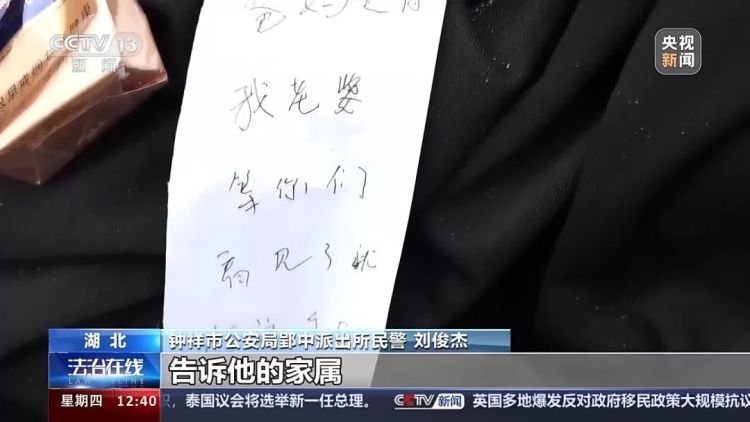 CCTV 13
新闻
央视
新闻
爸妈还有
我老婆
等你们
看见了就
湖北
钟祥市公安局郢中派出所民警 刘俊杰
法治在线
LAW ONLINE
告诉他的家属
星期四 12:40
,泰国议会将选举新一任总理。 CCTV 新闻 英国多地爆发反对政府移民政策大规模抗议